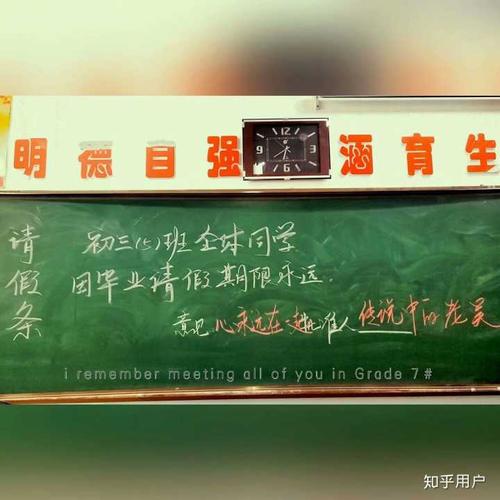 明德自强 涵育生
12
9 3
6
请假条
初三(5)班全体同学
因毕业请假期限永远.
意见 心永远在 准人 传说中的老吴
i remember meeting all of you in Grade 7#
知乎用户